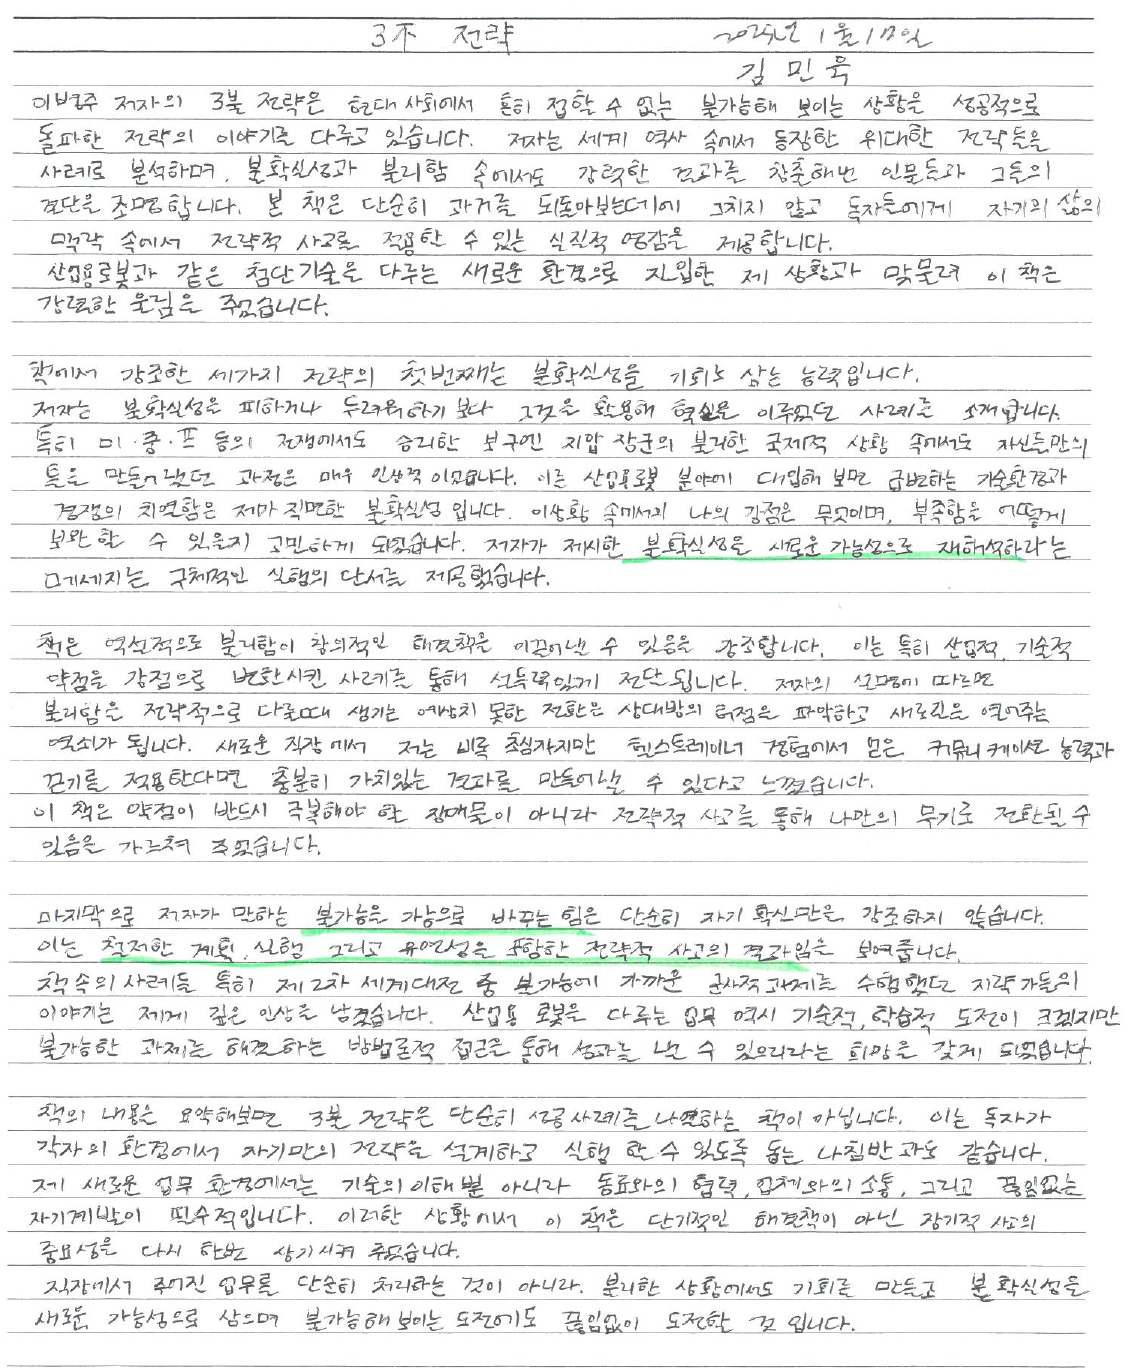 3不 전략 2025년 1월 17일
김민욱
이병주 저자의 3불 전략은 현대 사회에서 흔히 접할 수 없는 불가능해 보이는 상황을 성공적으로
돌파한 전략의 이야기를 다루고 있습니다. 저자는 세계 역사 속에서 등장한 위대한 전략들을
사례로 분석하며, 불확실성과 불리함 속에서도 강력한 결과를 창출해낸 인물들과 그들의
결단을 조명합니다. 본 책은 단순히 과거를 되돌아보는데에 그치지 않고 독자들에게 자기의 삶의
맥락 속에서 전략적 사고를 적용할 수 있는 실질적 영감을 제공합니다.
산업용로봇과 같은 첨단기술을 다루는 새로운 환경으로 진입한 제 상황과 맞물려 이 책은
강력한 울림을 주었습니다.
책에서 강조한 세가지 전략의 첫번째는 불확실성을 기회로 삼는 능력입니다.
저자는 불확실성을 피하거나 두려워하기 보다 그것을 활용해 혁신을 이루었던 사례를 소개합니다.
특히 미·중·프 등의 전쟁에서도 승리한 보구엔 지압 장군의 불리한 국제적 상황 속에서도 자신들만의
틀을 만들어냈던 과정은 매우 인상적이었습니다. 이를 산업용로봇 분야에 대입해 보면 급변하는 기술환경과
경쟁의 치열함은 제가 직면한 불확실성 입니다. 이상황 속에서의 나의 강점은 무엇이며, 부족함을 어떻게
보완할 수 있을지 고민하게 되었습니다. 저자가 제시한 불확실성을 새로운 가능성으로 재해석하라는
메세지는 구체적인 실행의 단서를 제공했습니다.
책은 역설적으로 불리함이 창의적인 해결책을 이끌어낼 수 있음을 강조합니다. 이는 특히 산업적, 기술적
약점을 강점으로 변환시킨 사례를 통해 설득력있게 전달됩니다. 저자의 설명에 따르면
불리함을 전략적으로 다룰때 생기는 예상치 못한 전환은 상대방의 허점을 파악하고 새로길을 열어주는
열쇠가 됩니다. 새로운 직장에서 저는 비록 초심자지만 헬스트레이너 경험에서 얻은 커뮤니케이션 능력과
끈기를 적용한다면 충분히 가치있는 결과를 만들어낼 수 있다고 느꼈습니다.
이 책은 약점이 반드시 극복해야 할 장애물이 아니라 전략적 사고를 통해 나만의 무기로 전환될 수
있음을 가르쳐 주었습니다.
마지막으로 저자가 말하는 불가능을 가능으로 바꾸는 힘은 단순히 자기 확신만을 강조하지 않습니다.
이는 철저한 계획, 실행 그리고 유연성을 포함한 전략적 사고의 결과임을 보여줍니다.
책 속의 사례들 특히 제2차 세계대전 중 불가능에 가까운 군사적과제를 수행했던 지략가들의
이야기는 제게 깊은 인상을 남겼습니다. 산업용 로봇을 다루는 업무 역시 기술적, 학습적 도전이 크겠지만
불가능한 과제를 해결하는 방법론적 접근을 통해 성과를 낼 수 있으리라는 희망을 갖게 되었습니다.
책의 내용을 요약해보면 3불 전략은 단순히 성공사례를 나열하는 책이 아닙니다. 이는 독자가
각자의 환경에서 자기만의 전략을 설계하고 실행 할 수 있도록 돕는 나침반과도 같습니다.
제 새로운 업무 환경에서는 기술의이해뿐 아니라 동료와의 협력, 업체와의 소통, 그리고 끊임없는
자기계발이 필수적입니다. 이러한 상황에서 이 책은 단기적인 해결책이 아닌 장기적 사고의
중요성을 다시 한번 상기시켜 주었습니다.
직장에서 주어진 업무를 단순히 처리하는 것이 아니라. 불리한 상황에서도 기회를 만들고 불확실성을
새로운 가능성으로 삼으며 불가능해보이는 도전에도 끊임없이 도전할 것 입니다.